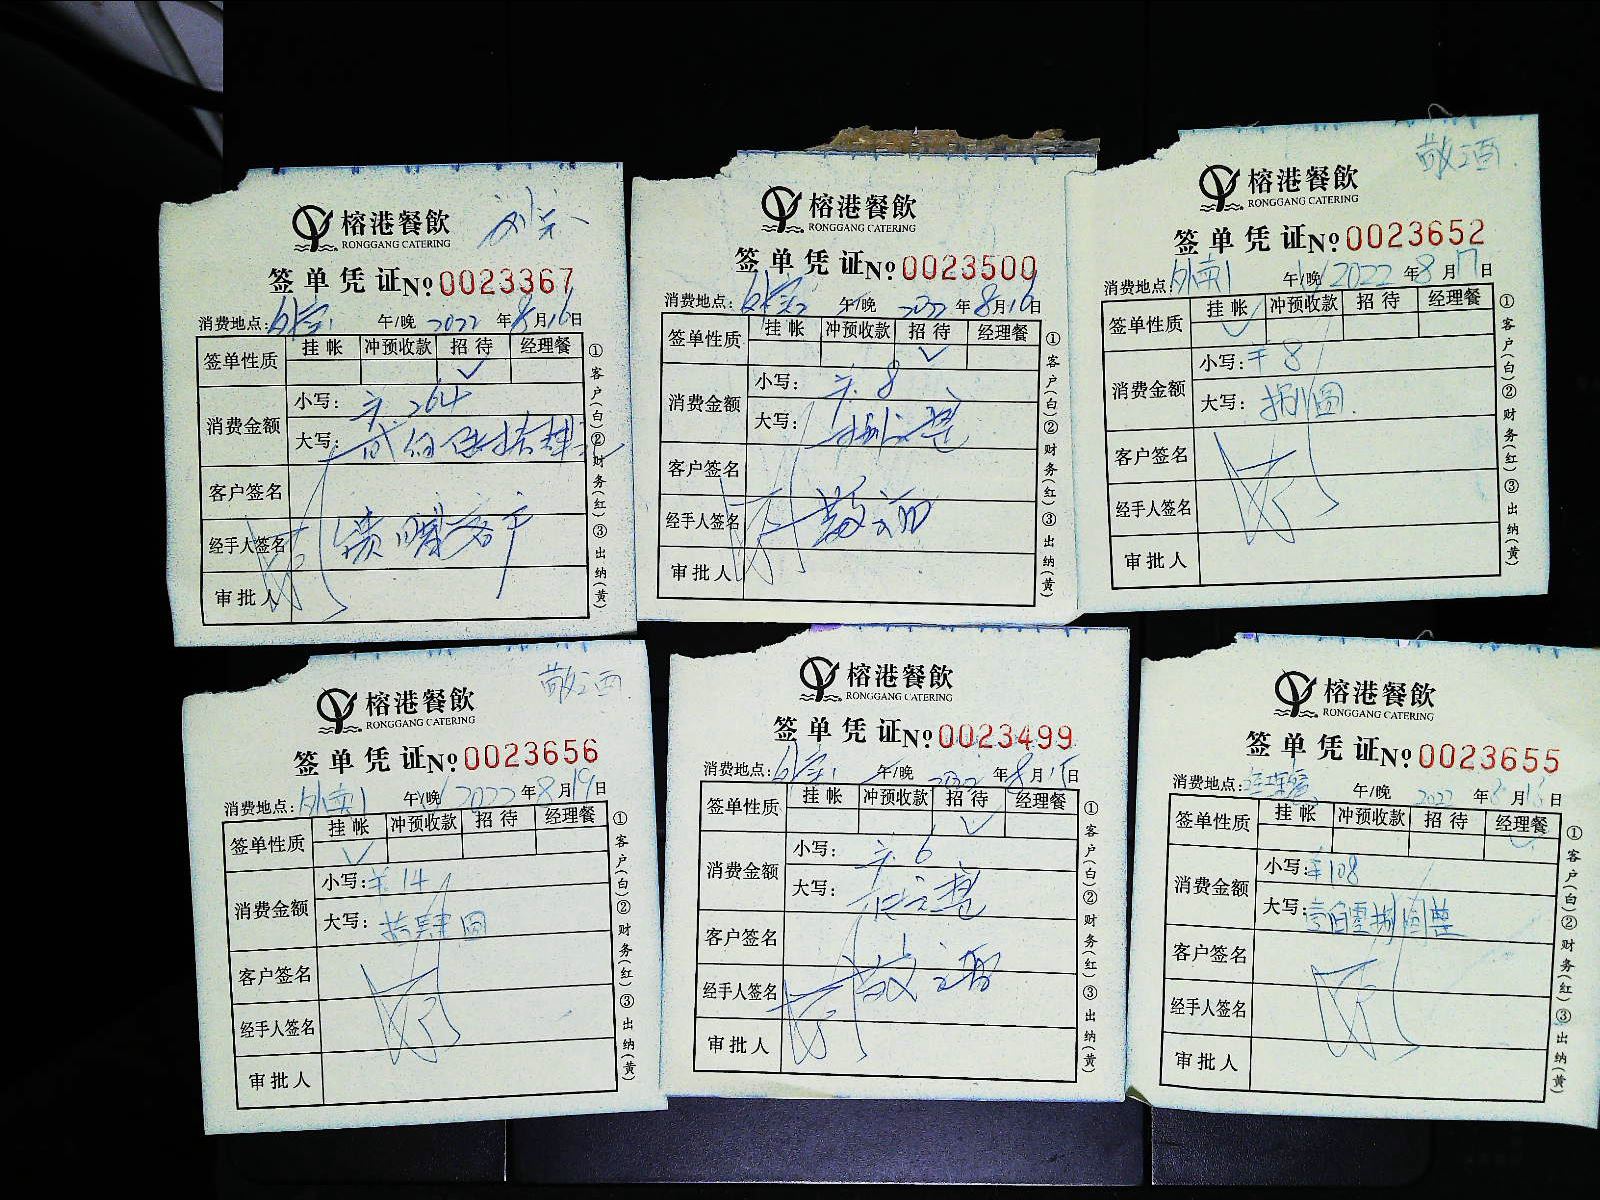 榕港餐飲
RONGGANG CATERING
签单凭证 No 0023367
消费地点: 外卖1 午/晚 2022 年 8 月 16 日
签单性质 挂帐 冲预收款 招待 经理餐
✓
消费金额 小写: 264
大写: 贰佰陆拾肆元
客户签名
经手人签名 客户
审批人
①客户(白)②财务(红)③出纳(黄)
榕港餐飲
RONGGANG CATERING
签单凭证 No 0023500
消费地点: 午/晚 2022 年 8 月 16 日
签单性质 挂帐 冲预收款 招待 经理餐
✓
消费金额 小写: 8
大写: 捌元整
客户签名
经手人签名 敬酒
审批人
①客户(白)②财务(红)③出纳(黄)
敬酒
榕港餐飲
RONGGANG CATERING
签单凭证 No 0023652
消费地点: 外卖1 午/晚 2022 年 8 月 17 日
签单性质 挂帐 冲预收款 招待 经理餐
✓
消费金额 小写: ¥8
大写: 捌圆
客户签名
经手人签名
审批人
①客户(白)②财务(红)③出纳(黄)
敬酒
榕港餐飲
RONGGANG CATERING
签单凭证 No 0023656
消费地点: 外卖1 午/晚 2022 年 8 月 19 日
签单性质 挂帐 冲预收款 招待 经理餐
✓
消费金额 小写: ¥14
大写: 拾肆圆
客户签名
经手人签名
审批人
①客户(白)②财务(红)③出纳(黄)
榕港餐飲
RONGGANG CATERING
签单凭证 No 0023499
消费地点: 外卖1 午/晚 2022 年 8 月 15 日
签单性质 挂帐 冲预收款 招待 经理餐
✓
消费金额 小写: 6
大写: 陆元整
客户签名
经手人签名 敬酒
审批人
①客户(白)②财务(红)③出纳(黄)
榕港餐飲
RONGGANG CATERING
签单凭证 No 0023655
消费地点: 午/晚 2022 年 8 月 18 日
签单性质 挂帐 冲预收款 招待 经理餐
✓
消费金额 小写: ¥108
大写: 壹佰零捌圆整
客户签名
经手人签名
审批人
①客户(白)②财务(红)③出纳(黄)